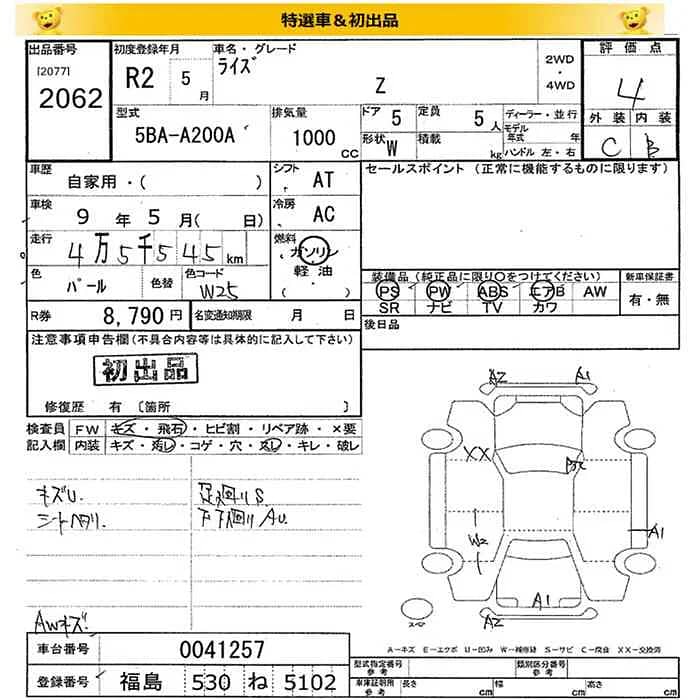 特選車＆初出品
出品番号
[2077]
2062
初度登録年月
R2 5月
車名・グレード
ライズ
Z
2WD
・
4WD
評価点
4
外装 内装
C B
型式
5BA-A200A
排気量
1000 CC
ドア 5
定員 5人
形状 W
積載 kg
ディーラー・並行
モデル年式 年
ハンドル 左・右
車歴
自家用・( )
シフト AT
車検
9年 5月( 日)
冷房 AC
走行
4万5千545km
燃料
ガソリン
軽油
( ・ )
色
パール
色替
色コード
W25
セールスポイント (正常に機能するものに限ります)
装備品 (純正品に限り〇をつけてください)
新車保証書
PS PW ABS エアB AW
SR ナビ TV カワ
有・無
R券 8,790円
名変通知期限 月 日
後日品
注意事項申告欄(不具合内容等は具体的に記入して下さい)
初出品
修復歴 有 〔箇所 〕
検査員 FW キズ・飛石・ヒビ割・リペア跡・×要
記入欄 内装 キズ・汚レ・コゲ・穴・ ・キレ・破レ
キズU.
シートヘタリ
足廻りS
下廻りAU.
AWキズ.
A2 A1
XX
W2
A1
A1
A2
スペア
A-キズ E-エクボ U-凹み W-補修跡 S-サビ C-腐食 XX-交換済
車台番号 0041257
登録番号 福島 530 ね 5102
型式指定番号
参考
類別区分番号
参考
車庫証明用
参考
長さ cm
幅 cm
高さ cm